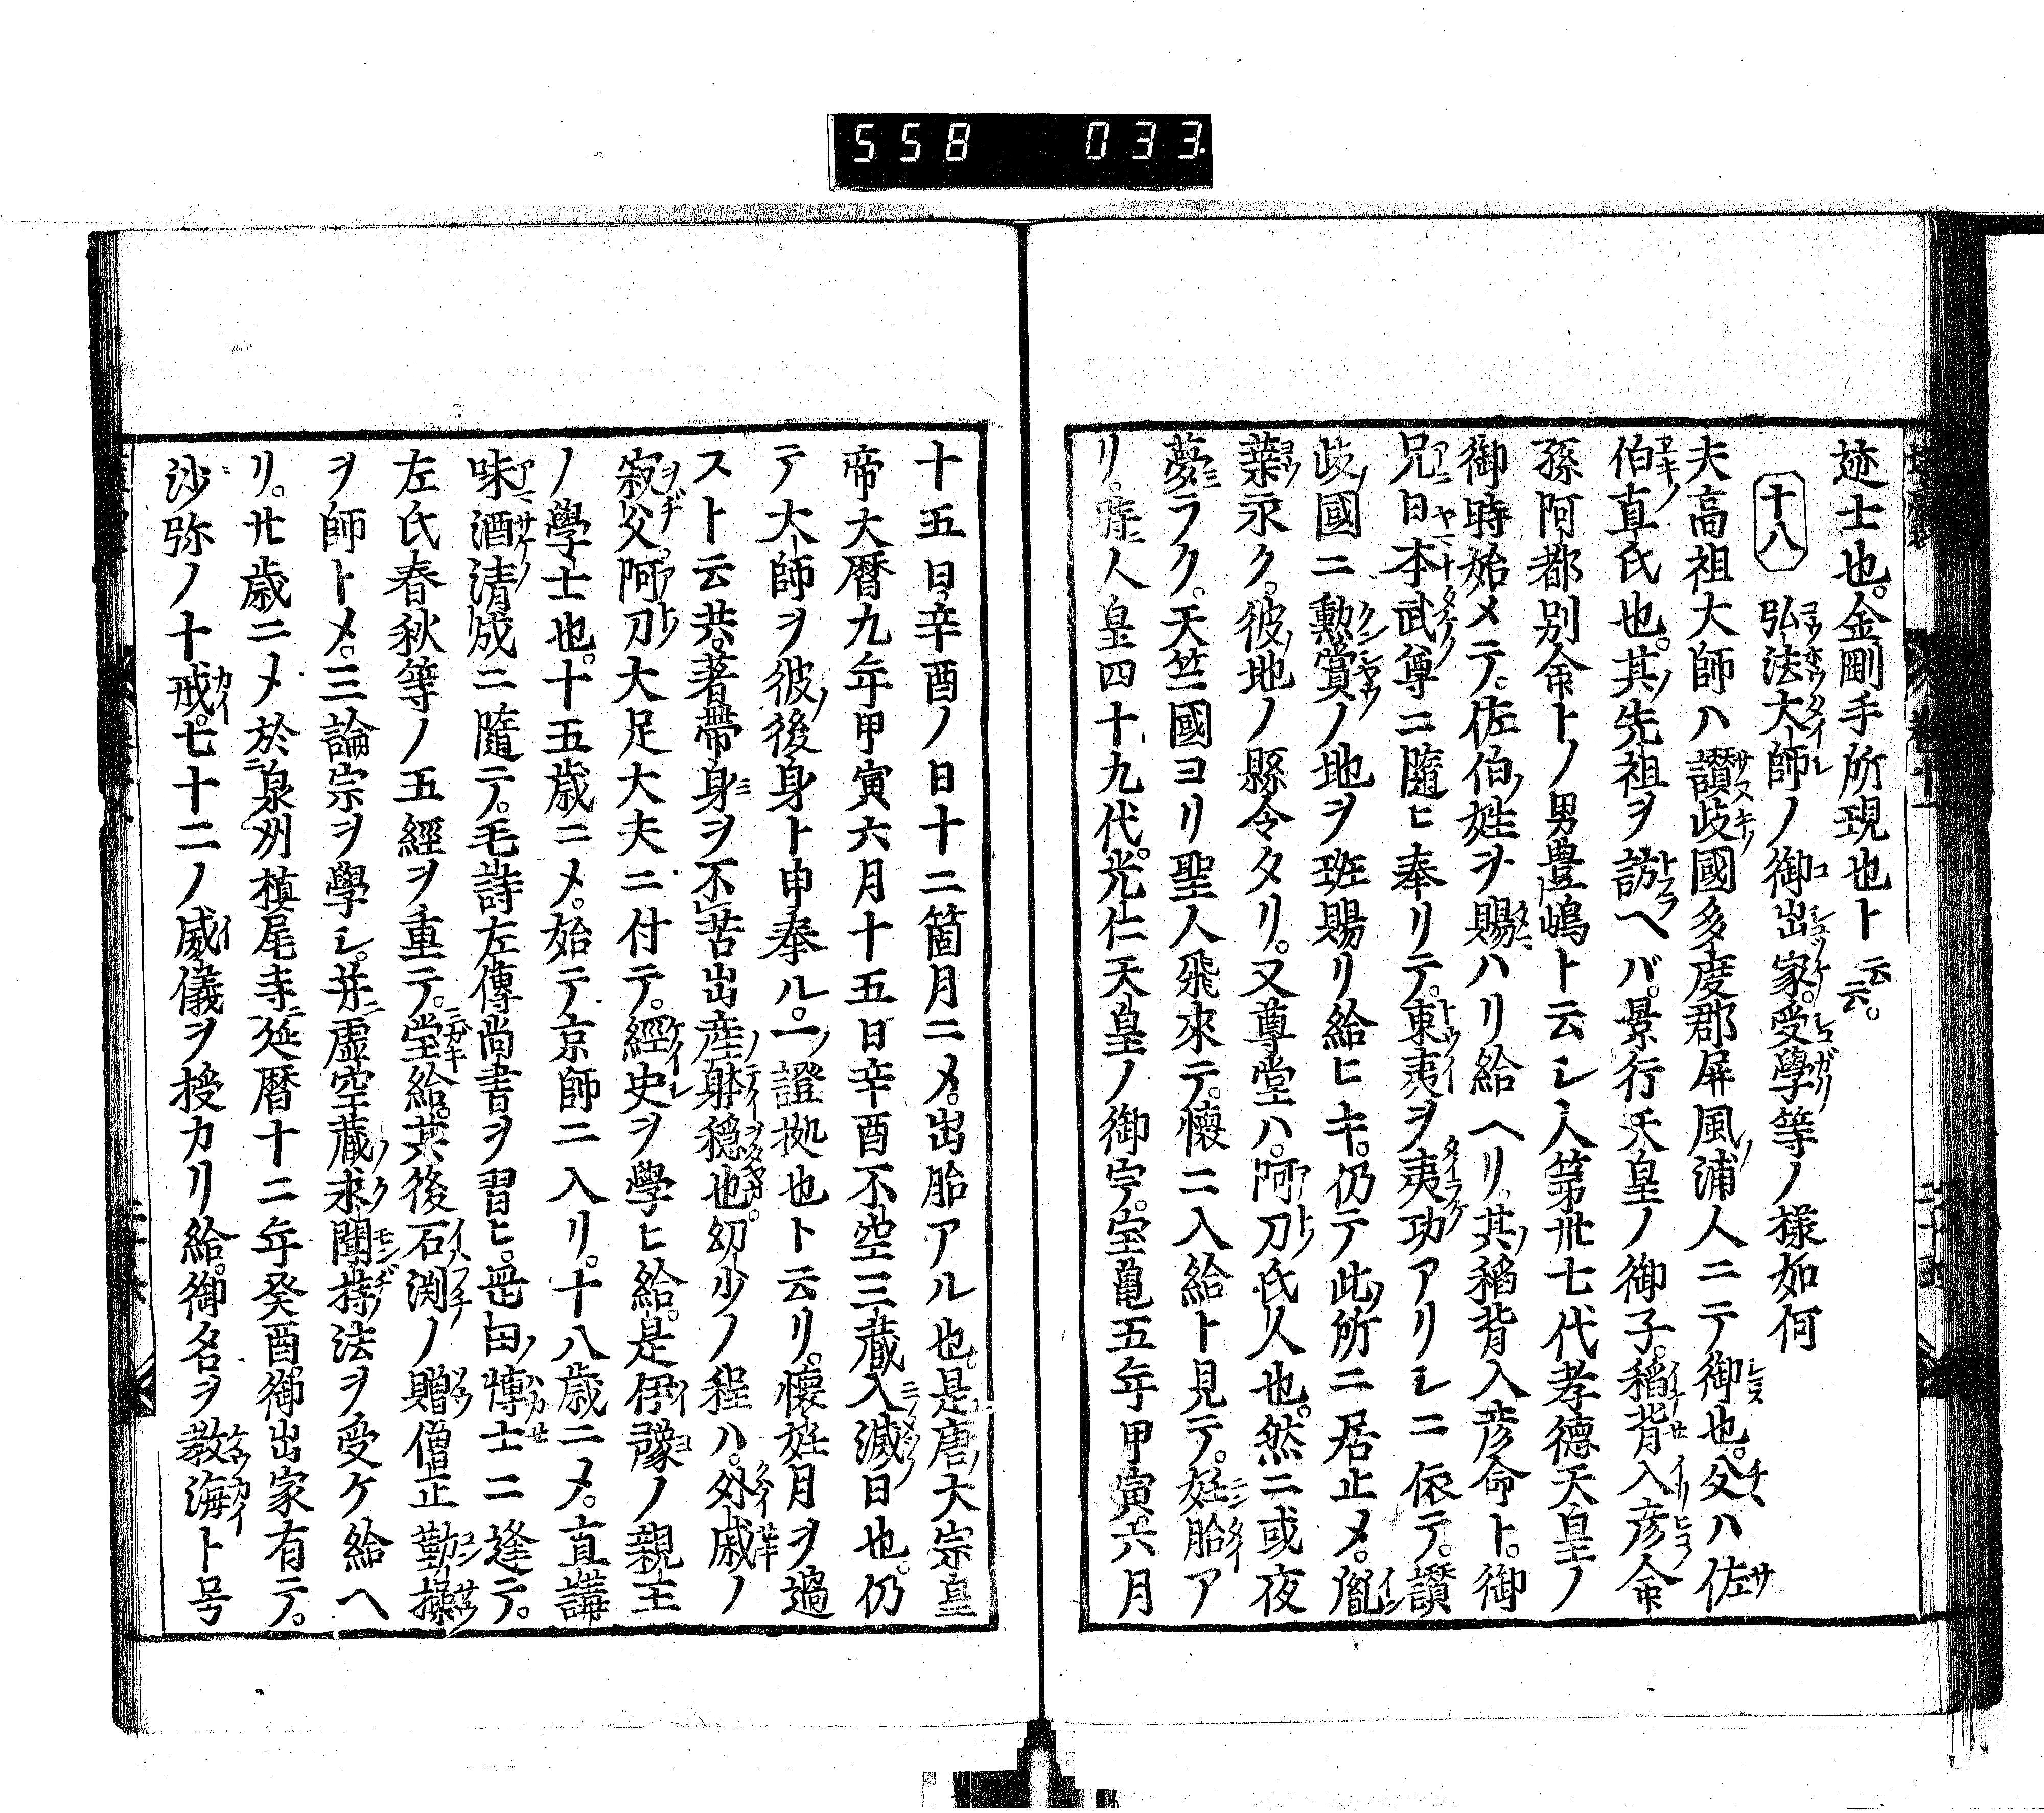 558 033
迹士也。金剛手所現也ト云云。
十八 弘法大師ノ御出家。受學等ノ樣如何
夫高祖大師ハ讃岐國多度郡屏風浦人ニテ御也。父ハ佐
伯直氏也。其ノ先祖ヲ訪ヘバ。景行天皇ノ御子。稻背入彦命
孫阿都別命トノ男豊嶋ト云シ人第卅七代孝德天皇ノ
御時始メテ。佐伯ノ姓ヲ賜ハリ給ヘリ。其ノ稻背入彦命ト。御
兄日本武尊ニ隨ヒ奉リテ。東夷ヲ夷功アリシニ依テ。讃
岐ノ國ニ勳賞ノ地ヲ班賜リ給ヒキ。仍テ此ノ所ニ居止メ。胤
葉永ク。彼ノ地ノ縣令タリ。又尊堂ハ。阿刀ノ氏人也。然ニ或夜
夢ラク。天竺國ヨリ聖人飛來テ。懷ニ入給ト見テ。姙胎ア
リ。時ニ人皇四十九代。光仁天皇ノ御宇。宝亀五年甲寅六月
十五日辛酉ノ日十二箇月ニメ。出胎アル也。是唐ノ大宗皇
帝大曆九年甲寅六月十五日辛酉不空三藏入滅ノ日也。仍
テ大師ヲ彼ノ後身ト申奉ル。一ノ證拠也ト云リ。懷姙月ヲ過
スト云共。著帶身ヲ不苦出産ノ躰穏也。幼少ノ程ハ。外戚ノ
寂父阿刀大足大夫ニ付テ。經史ヲ學ヒ給。是伊豫ノ親王
ノ學士也。十五歳ニメ。始テ京師ニ入リ。十八歳ニメ。直講
味酒ノ清成ニ隨テ。毛詩左傳尚書ヲ習ヒ。岡田ノ博士ニ逢テ。
左氏春秋等ノ五經ヲ重テ。堂給。其後石渕ノ贈僧正勤操
ヲ師トメ。三論宗ヲ學シ。并ニ虚空藏求聞持ノ法ヲ受ケ給ヘ
リ。廿歳ニメ於泉州槙尾寺。延曆十二年癸酉。御出家有テ。
沙弥ノ十戒。七十二ノ威儀ヲ授カリ給。御名ヲ教海ト号